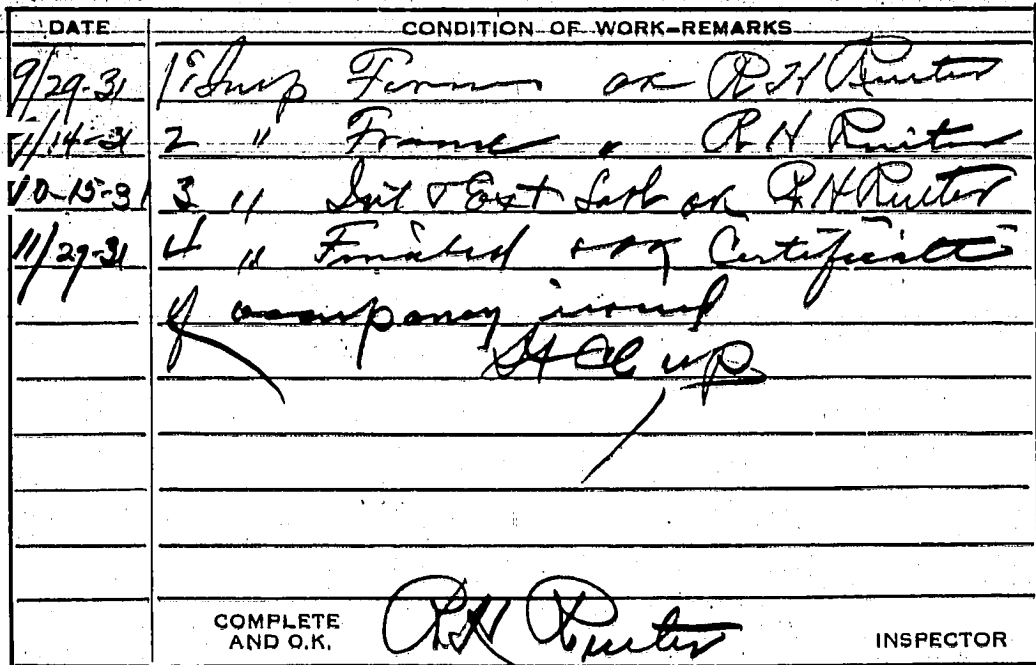 DATE CONDITION OF WORK-REMARKS
9/29-31 1st Insp Forms ok R H Ruiter
/14-31 2 " Frame " R H Ruiter
10-15-31 3 " Int & Ext Lath ok R H Ruiter
11/27-31 4 " Finished ok Certificate
of occupancy issued
up
COMPLETE AND O.K. R H Ruiter INSPECTOR